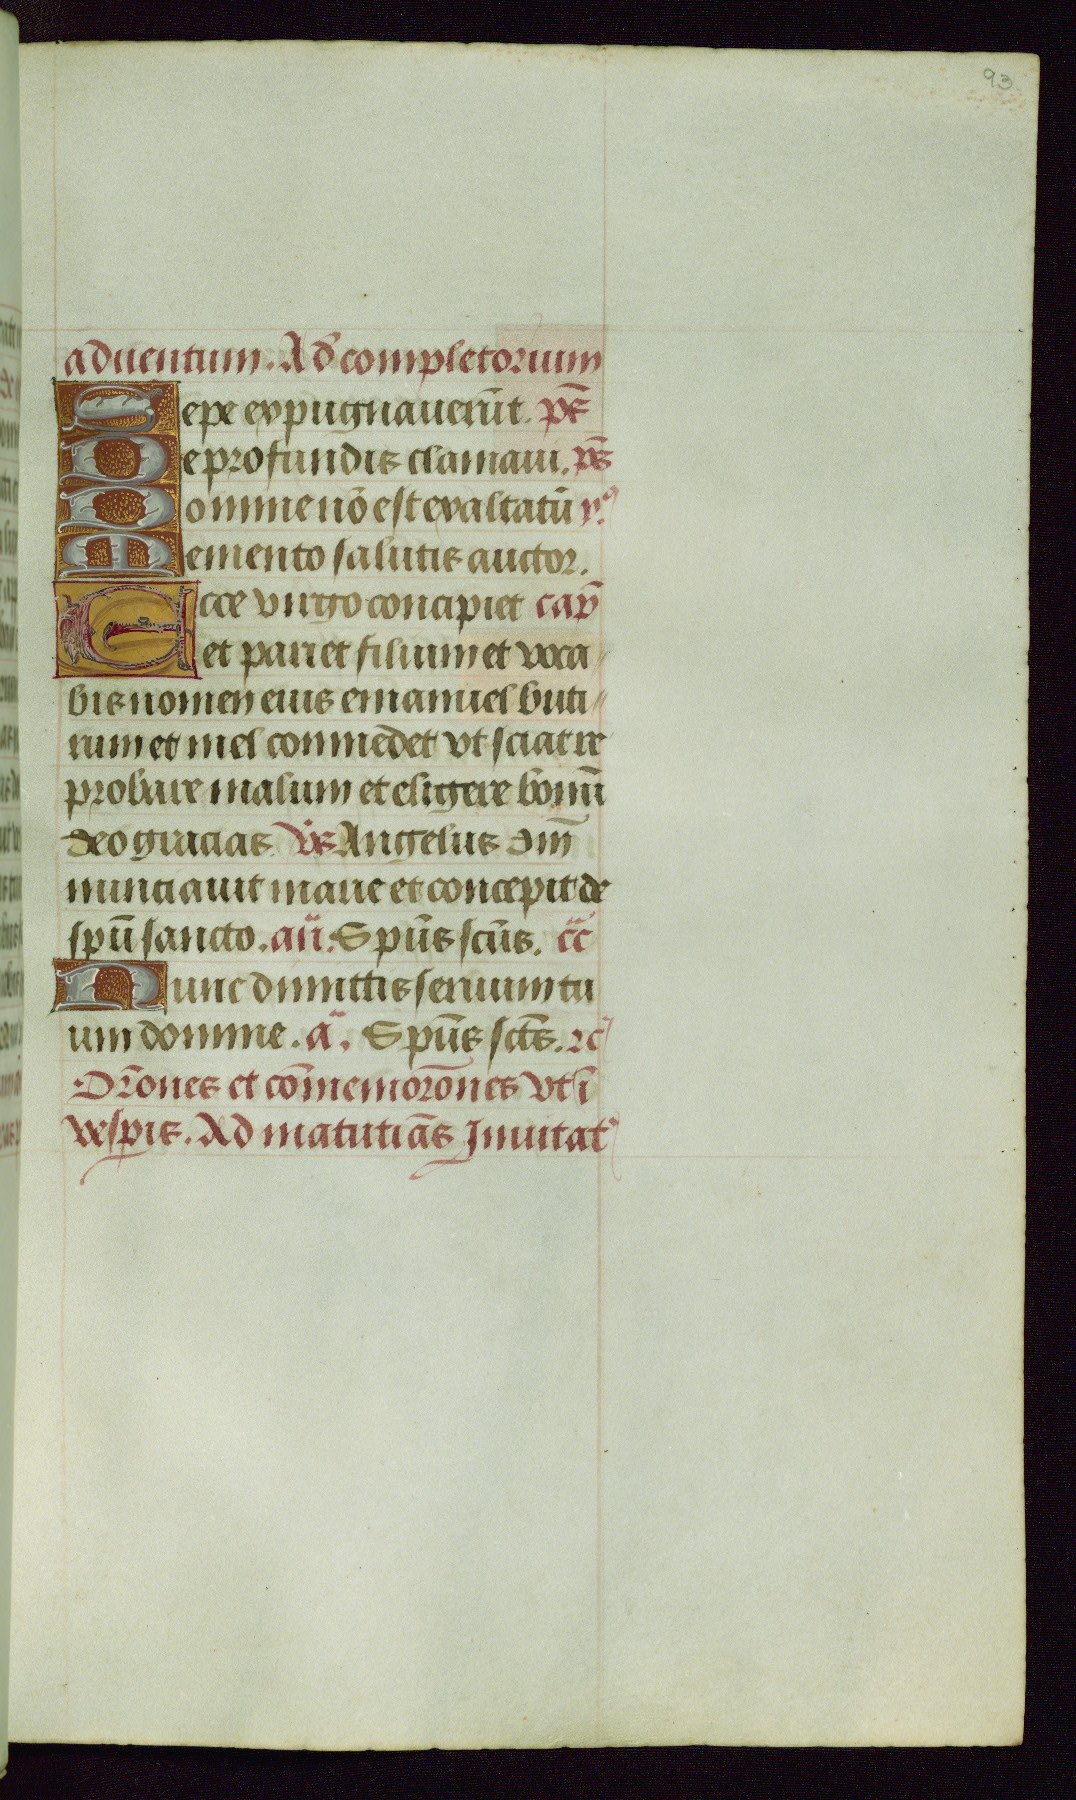 93
aduentum. Ad completorium
Sepe expugnauerūt. ps̄
De profundis clamaui. ps̄
Domine nō est exaltatū
Memento salutis auctor.
Ecce virgo concipiet cap̄
et pariet filium et voca
bis nomen eius emanuel buti
rum et mel conmedet vt sciat re
probare malum et eligere bonū
deo gracias. Vs̄ Angelus dnī
nunciauit marie et concepit de
spū sancto. añ. Spūs scūs.
Nunc dimittis seruum tu
um domine. a. Spūs sctūs.
Orōnes et cōmemorōnes vt ī
vespis. Ad matutiās Inuitat